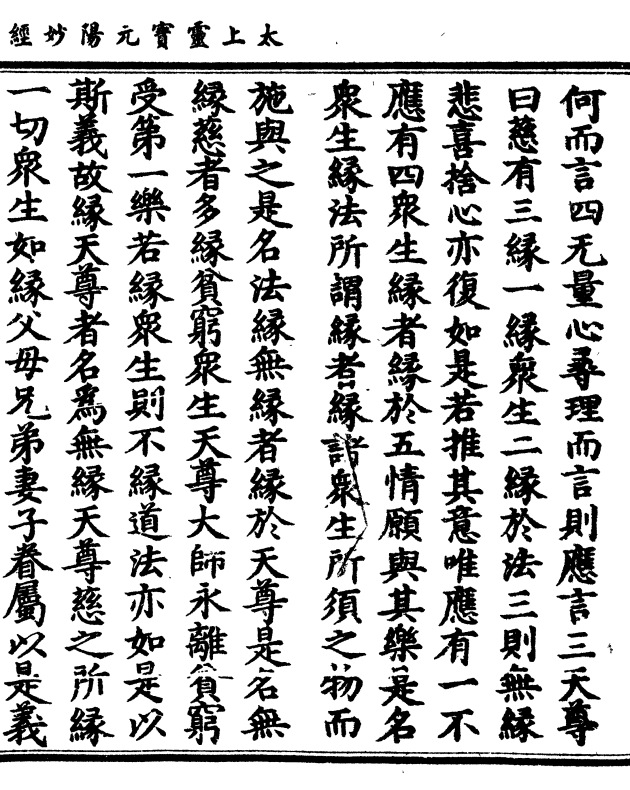 太上靈寳元陽妙經
何而言四无量心尋理而言則應言三天尊
曰慈有三縁一縁衆生二縁於法三則無縁
悲喜捨心亦復如是若推其意唯應有一不
應有四衆生縁者縁於五情願與其樂是名
衆生縁法所謂縁者縁諸衆生所須之物而
施與之是名法縁無縁者縁於天尊是名無
縁慈者多縁貧窮衆生天尊大師永離貧窮
受第一樂若縁衆生則不縁道法亦如是以
斯義故縁天尊者名爲無縁天尊慈之所縁
一切衆生如縁父母兄弟妻子眷屬以是義